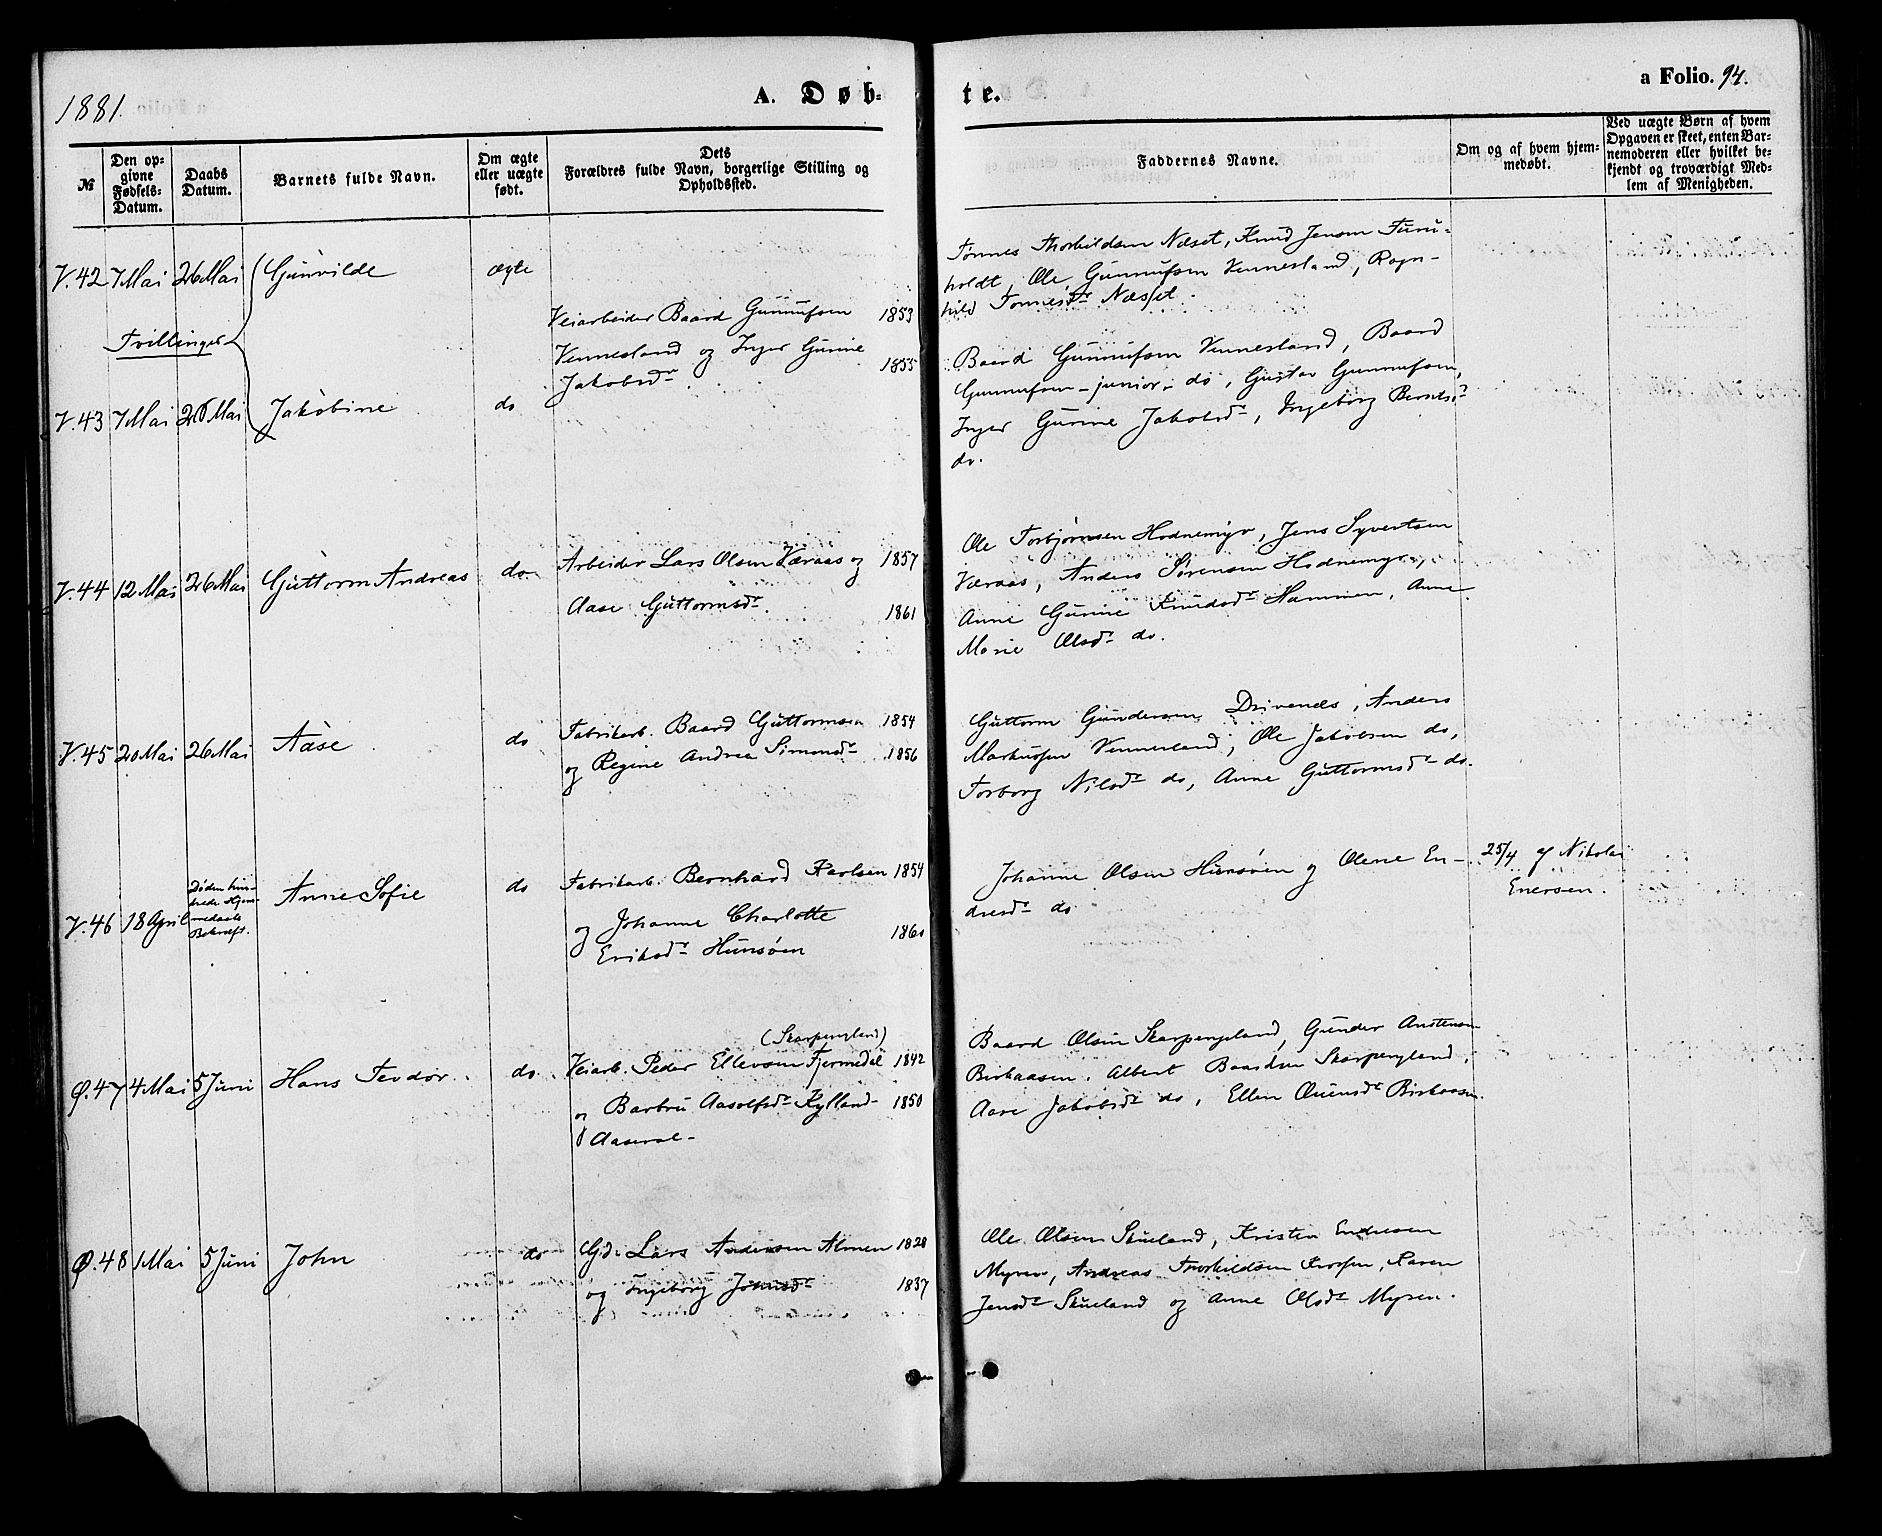 1881.
A. Døb-
te.
a Folio. 94.
№
Den op-
givne
Fødsels-
Datum.
Daabs
Datum.
Barnets fulde Navn.
Om ægte
eller uægte
født.
Dets
Forældres fulde Navn, borgerlige Stilling og
Opholdssted.
Faddernes Navne.
Om og af hvem hjem-
medøbt.
Ved uægte Børn af hvem
Opgaven er skeet, enten Bar-
nemoderen eller hvilket be-
kjendt og troværdigt Med-
lem af Menigheden.
V.42 7 Mai 26 Mai Gunvilde ægte
Tvillinger
Veiarbeider Baard Gunnufsen 1853
Vennesland og Inger Gurine 1855
Jakobsdr.
Tønnes Thorkildsen Næset, Knud Jensen Furu-
holdt, Ole Gunnufsen Vennesland, Ragn-
hild Tønnesdr Næset.
V.43 7 Mai 26 Mai Jakobine do
Baard Gunnufsen Vennesland, Baard
Gunnufsen - junior - do, Gustav Gunnufsen,
Inger Gurine Jakobsdr, Ingeborg Berntsdr
do.
V.44 12 Mai 26 Mai Guttorm Andreas do
Arbeider Lars Olsen Væraas og 1857
Aase Guttormsdr. 1861
Ole Torbjørnsen Hodnemyr, Jens Syvertsen
Væraas, Anders Sørensen Hodnemyr,
Anne Gurine Knudsdr Hammen, Anne
Marie Olsdr do.
V.45 20 Mai 26 Mai Aase do
Fabrikarb. Baard Guttormsen 1854
og Regine Andrea Simonsdr 1856
Guttorm Gundersen Drivenes, Anders
Markussen Vennesland, Ole Jakobsen do,
Torborg Nilsdr do, Anne Guttormsdr do.
V.46 18 April
Døden hin-
drede Hjem-
medaabs
Bekræft.
Anne Sofie do
Fabrikarb. Bernhard Karlsen 1854
og Johanne Charlotte
Eriksdr Hunsøen 1860
Johanne Olsen Hunsøen og Olene En-
dresdr do
25/4 af Nikolai
Enersen.
Ø.47 4 Mai 5 Juni Hans Tevdor do
(Skarpengland)
Veiarb. Peder Ellevsen Fjermedal 1842
og Barbru Aasolfsdr Kylland 1850
Aaseral -
Baard Olsen Skarpengland, Gunder Austensen
Birkaasen, Albert Baardsen Skarpengland,
Aase Jakobsdr do, Ellen Ouensdr Birkaasen.
Ø.48 1 Mai 5 Juni John do
Gd: Lars Andersen Almen 1828
og Ingeborg Jonsdr 1837
Ole Olsen Skueland, Kristen Endresen
Myren, Andreas Thorkildsen Krossen, Karen
Jensdr Skueland og Anne Olsdr Myren.